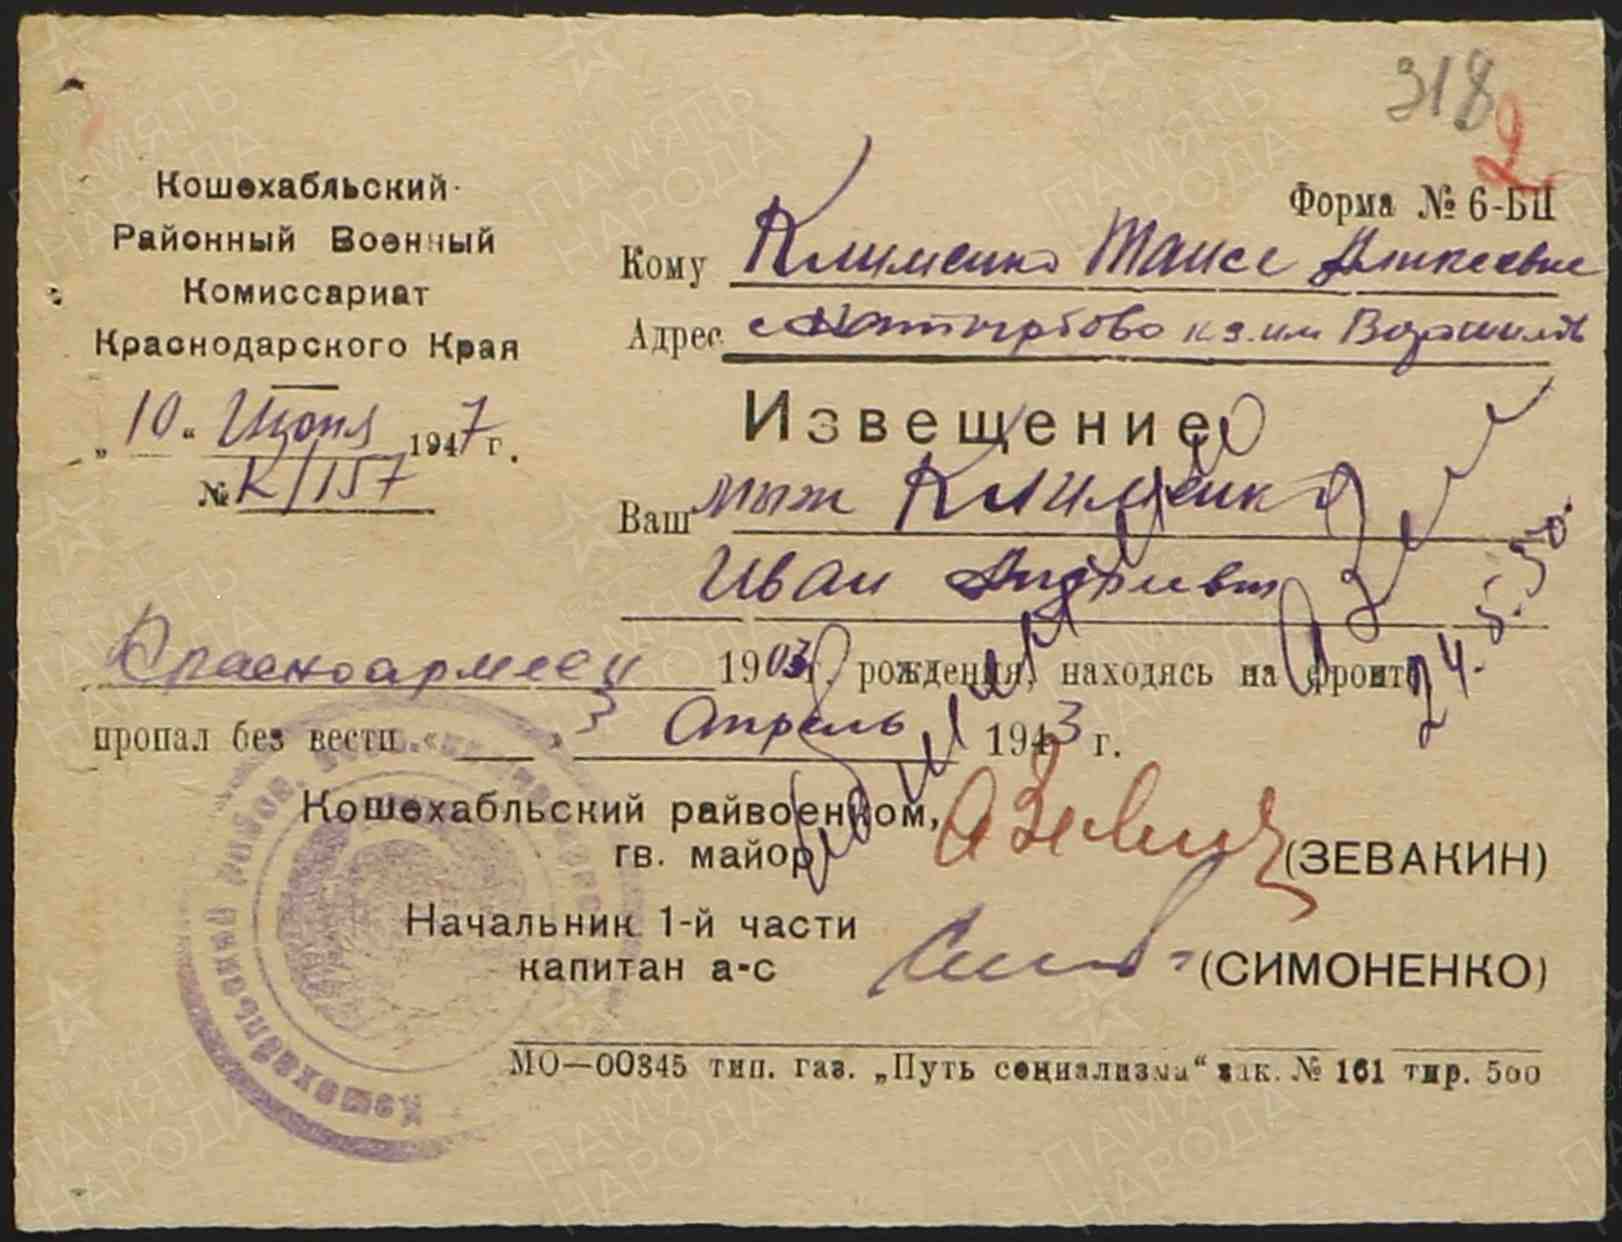 318
29
Форма № 6-БП
Кошехабльский
Районный Военный
Комиссариат
Краснодарского Края
„10“ Июня 1947 г.
№ К/157
Кому Клименко Таисе
Адрес с Натырбово к-з. им Ворошилов
Извещение
Ваш муж Клименко
Иван Андреевич
Красноармеец 1903 г. рождения, находясь на фронте
пропал без вести „ “ 3 Апрель 1943 г.
24.5.50.
Кошехабльский райвоенком,
гв. майор (ЗЕВАКИН)
Начальник 1-й части
капитан а-с (СИМОНЕНКО)
МО—00345 тип. газ. „Путь социализма“ зак. № 161 тир. 500
ПАМЯТЬ НАРОДА